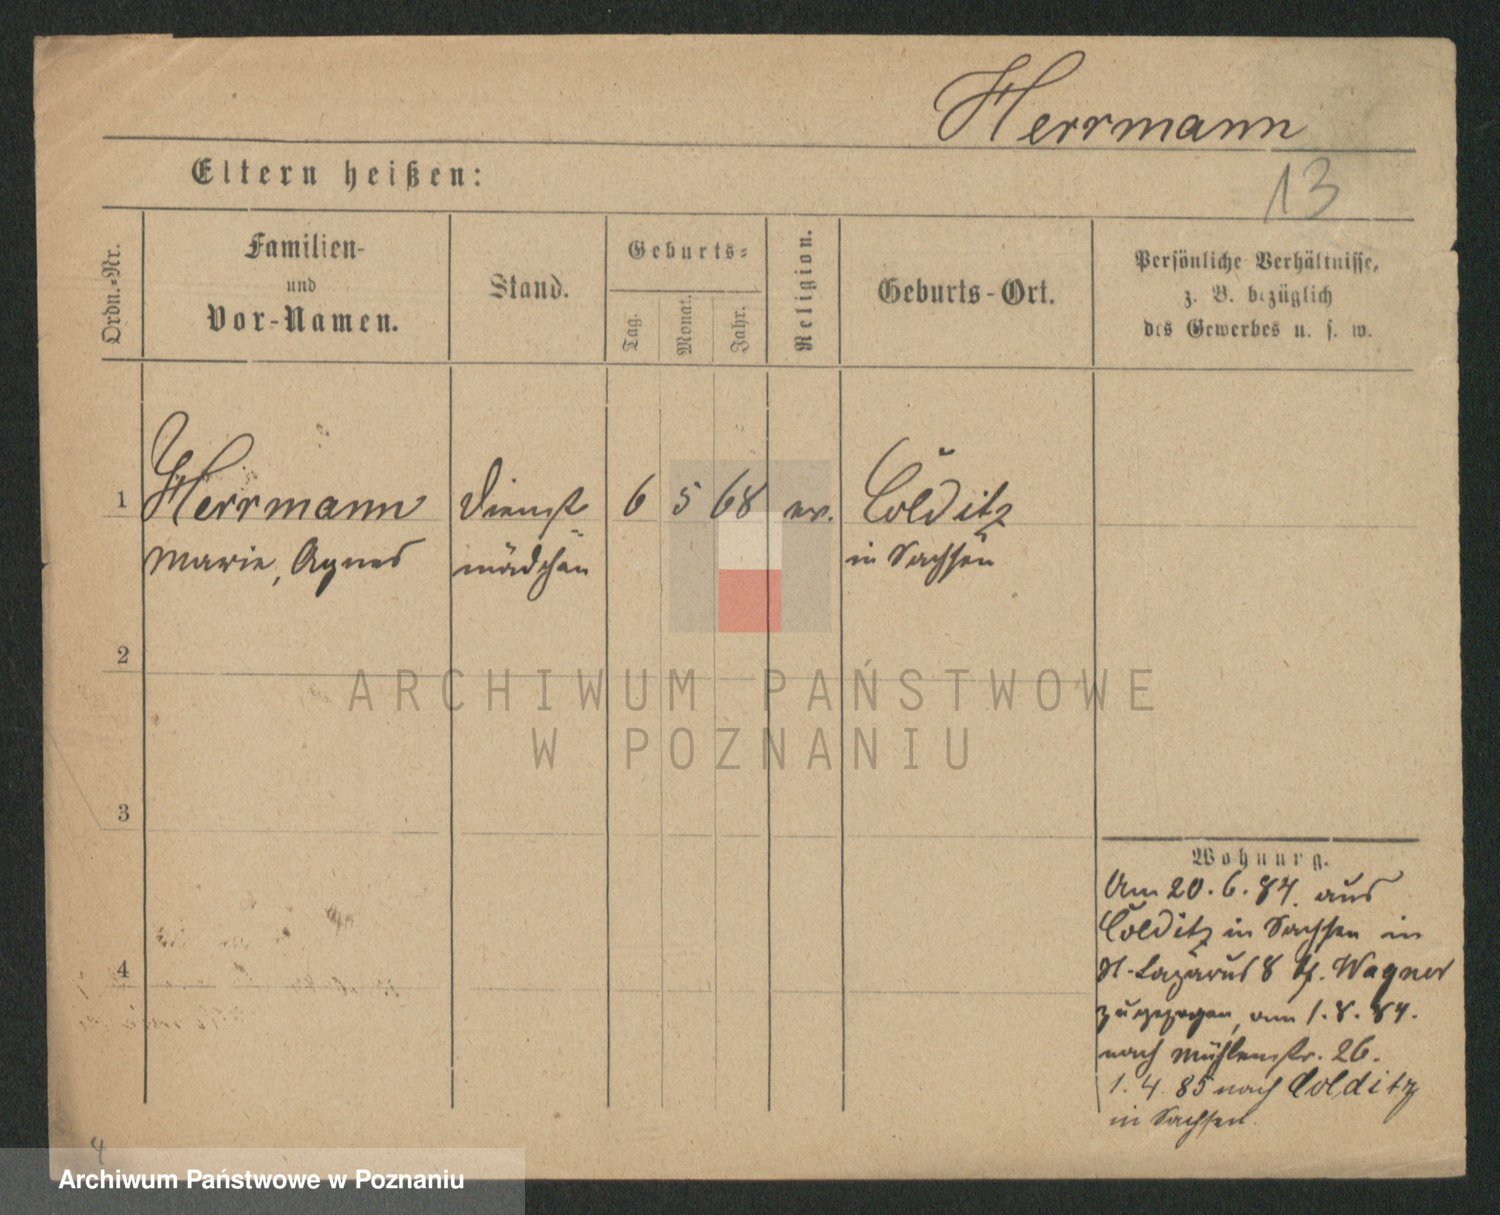 Herrmann
Eltern heißen:
13
Ordn.-Nr.
Familien-
und
Vor-Namen.
Stand.
Geburts-
Tag.
Monat.
Jahr.
Religion.
Geburts-Ort.
Persönliche Verhältnisse,
z. B. bezüglich
des Gewerbes u. s. w.
1 Herrmann Dienst 6 5 68 ev. Colditz
Marie, Agnes mädchen in Sachsen
2
ARCHIWUM PAŃSTWOWE
W POZNANIU
3
Wohnung.
Am 20. 6. 84. aus
Colditz in Sachsen in
St. Lazarus 8 b/. Wagner
zugezogen, am 1. 8. 84.
nach Mühlenstr. 26.
1. 4. 85 nach Colditz
in Sachsen.
4
4
Archiwum Państwowe w Poznaniu